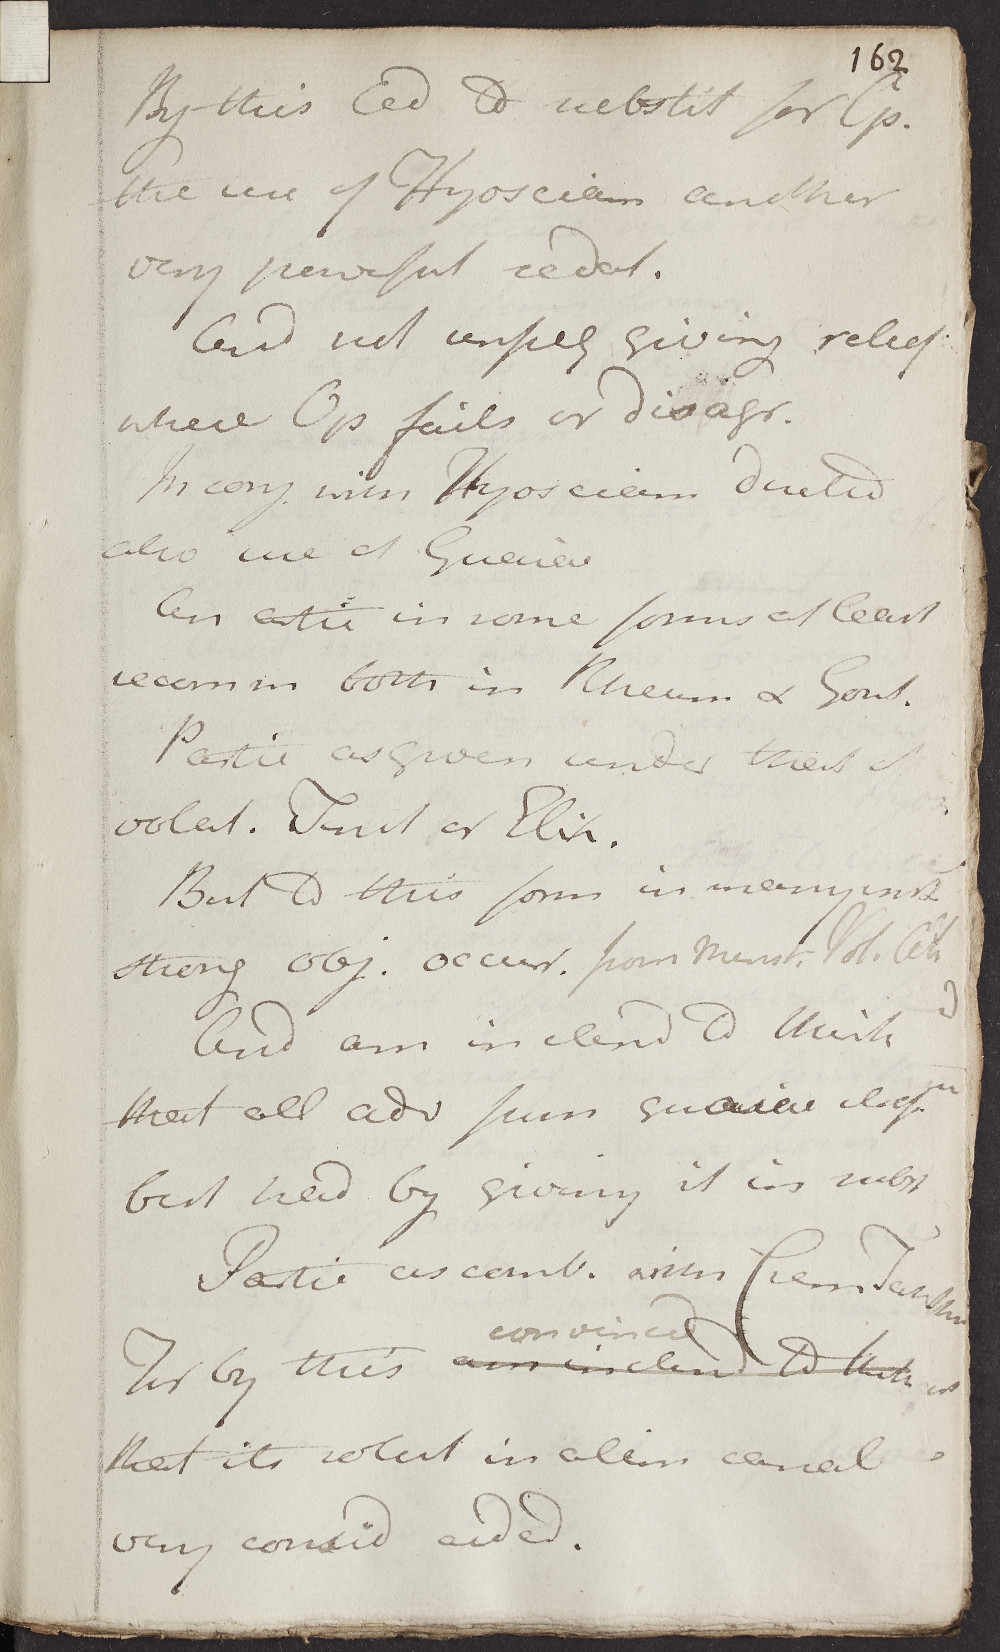 162
By this Led to substit for Op.
the use of Hyosciam another
very powerful sedat.
And not unfreq giving relief
where Op fails or disagr.
In conj. with Hyosciam directed
also use of Guaiac
An artic in some forms at least
recomm both in Rheum & Gout.
Partic as given under that of
volat. Tinct or Elix.
But to this form in many inst
strong obj. occur. from Menst. Vol. Æth
And am inclend to think
that all adv from guaiac
best had by giving it in subst
Partic as comb. with Crem Tart
convinced
For by this am inclend to think
that its solut in alim canal
very consid aided.